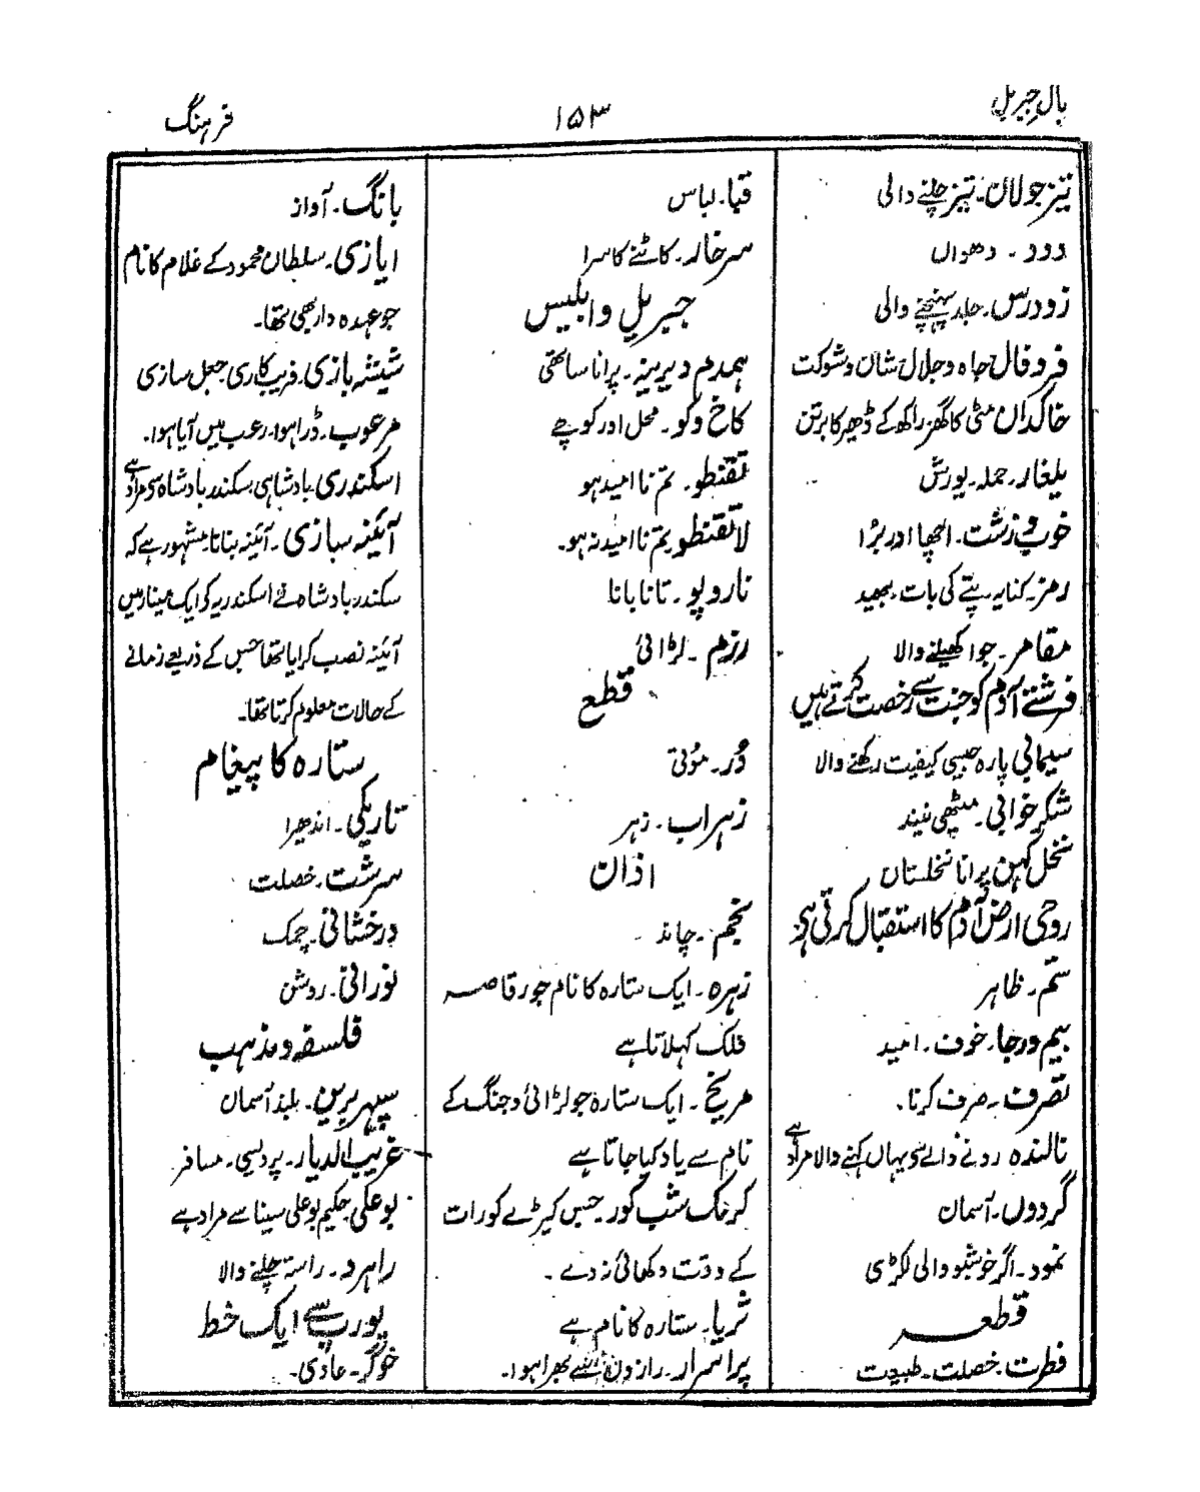 بال جبریل
۱۵۳
فرہنگ
تیز جولاں۔ تیز چلنے والی
دود۔ دھواں
زودرس۔ جلد پہنچنے والی
فروفال جاہ وجلال شان وشوکت
خاکداں مٹی کا گھر راکھ کے ڈھیر کا برتن
یلغار۔ حملہ۔ یورش
خوب وزشت۔ اچھا اور بڑا
رمز۔ کنایہ۔ پتے کی بات۔ بھید
مقامر۔ جوا کھیلنے والا
فرشتے آدم کو جنت سے رخصت کرتے ہیں
سیمابی پارہ جیسی کیفیت رکھنے والا
شکر خوابی۔ میٹھی نیند
نخل کہن پرانا نخلستان
روحی ارض آدم کا استقبال کرتی ہے
ستم۔ ظاہر
بیم ورجا۔ خوف۔ امید
تصرف۔ صرف کرنا۔
نالندہ رونے والے سے یہاں کہنے والا مراد ہے
گردوں۔ آسمان
نمود۔ اگر خوشبو والی لکڑی
قطعہ
فطرت۔ خصلت۔ طبیعت
قبا۔ لباس
سرخار۔ کانٹے کا سرا
جبریل وابلیس
ہمدم دیرینہ۔ پرانا ساتھی
کاخ وکو۔ محل اور کوچے
تقنطو۔ تم نا امید ہو
لا تقنطو تم نا امید نہ ہو۔
تاروپو۔ تانا بانا
رزم۔ لڑائی
قطع
دُر۔ موتی
زہراب۔ زہر
اذان
نجم۔ چاند
زہرہ۔ ایک ستارہ کا نام جو رقاصہ
فلک کہلاتا ہے
مریخ۔ ایک ستارہ جو لڑائی وجنگ کے
نام سے یاد کیا جاتا ہے
کرمک شب کور۔ جس کیڑے کو رات
کے وقت دکھائی نہ دے۔
ثریا۔ ستارہ کا نام ہے
پراسرار۔ رازوں سے بھرا ہوا۔
بانگ۔ آواز
ایازی۔ سلطان محمود کے غلام کا نام
جو عہدہ دار بھی تھا۔
شیشہ بازی۔ فریب کاری جعل سازی
مرعوب۔ ڈرا ہوا۔ رعب میں آیا ہوا۔
اسکندری۔ بادشاہی سکندر بادشاہ سے مراد ہے
آئینہ سازی۔ آئینہ بنانا۔ مشہور ہے کہ
سکندر بادشاہ نے اسکندریہ کو ایک مینار میں
آئینہ نصب کرایا تھا جس کے ذریعے زمانے
کے حالات معلوم کرتا تھا۔
ستارہ کا پیغام
تاریکی۔ اندھیرا
سرشت۔ خصلت
درخشانی۔ چمک
نورانی۔ روشن
فلسفہ ومذہب
سپہر بریں۔ بلند آسمان
غریب الدیار۔ پردیسی۔ مسافر
بوعلی۔ حکیم بوعلی سینا سے مراد ہے
راہرو۔ راستہ چلنے والا
یورپ سے ایک خط
خوگر۔ عادی۔